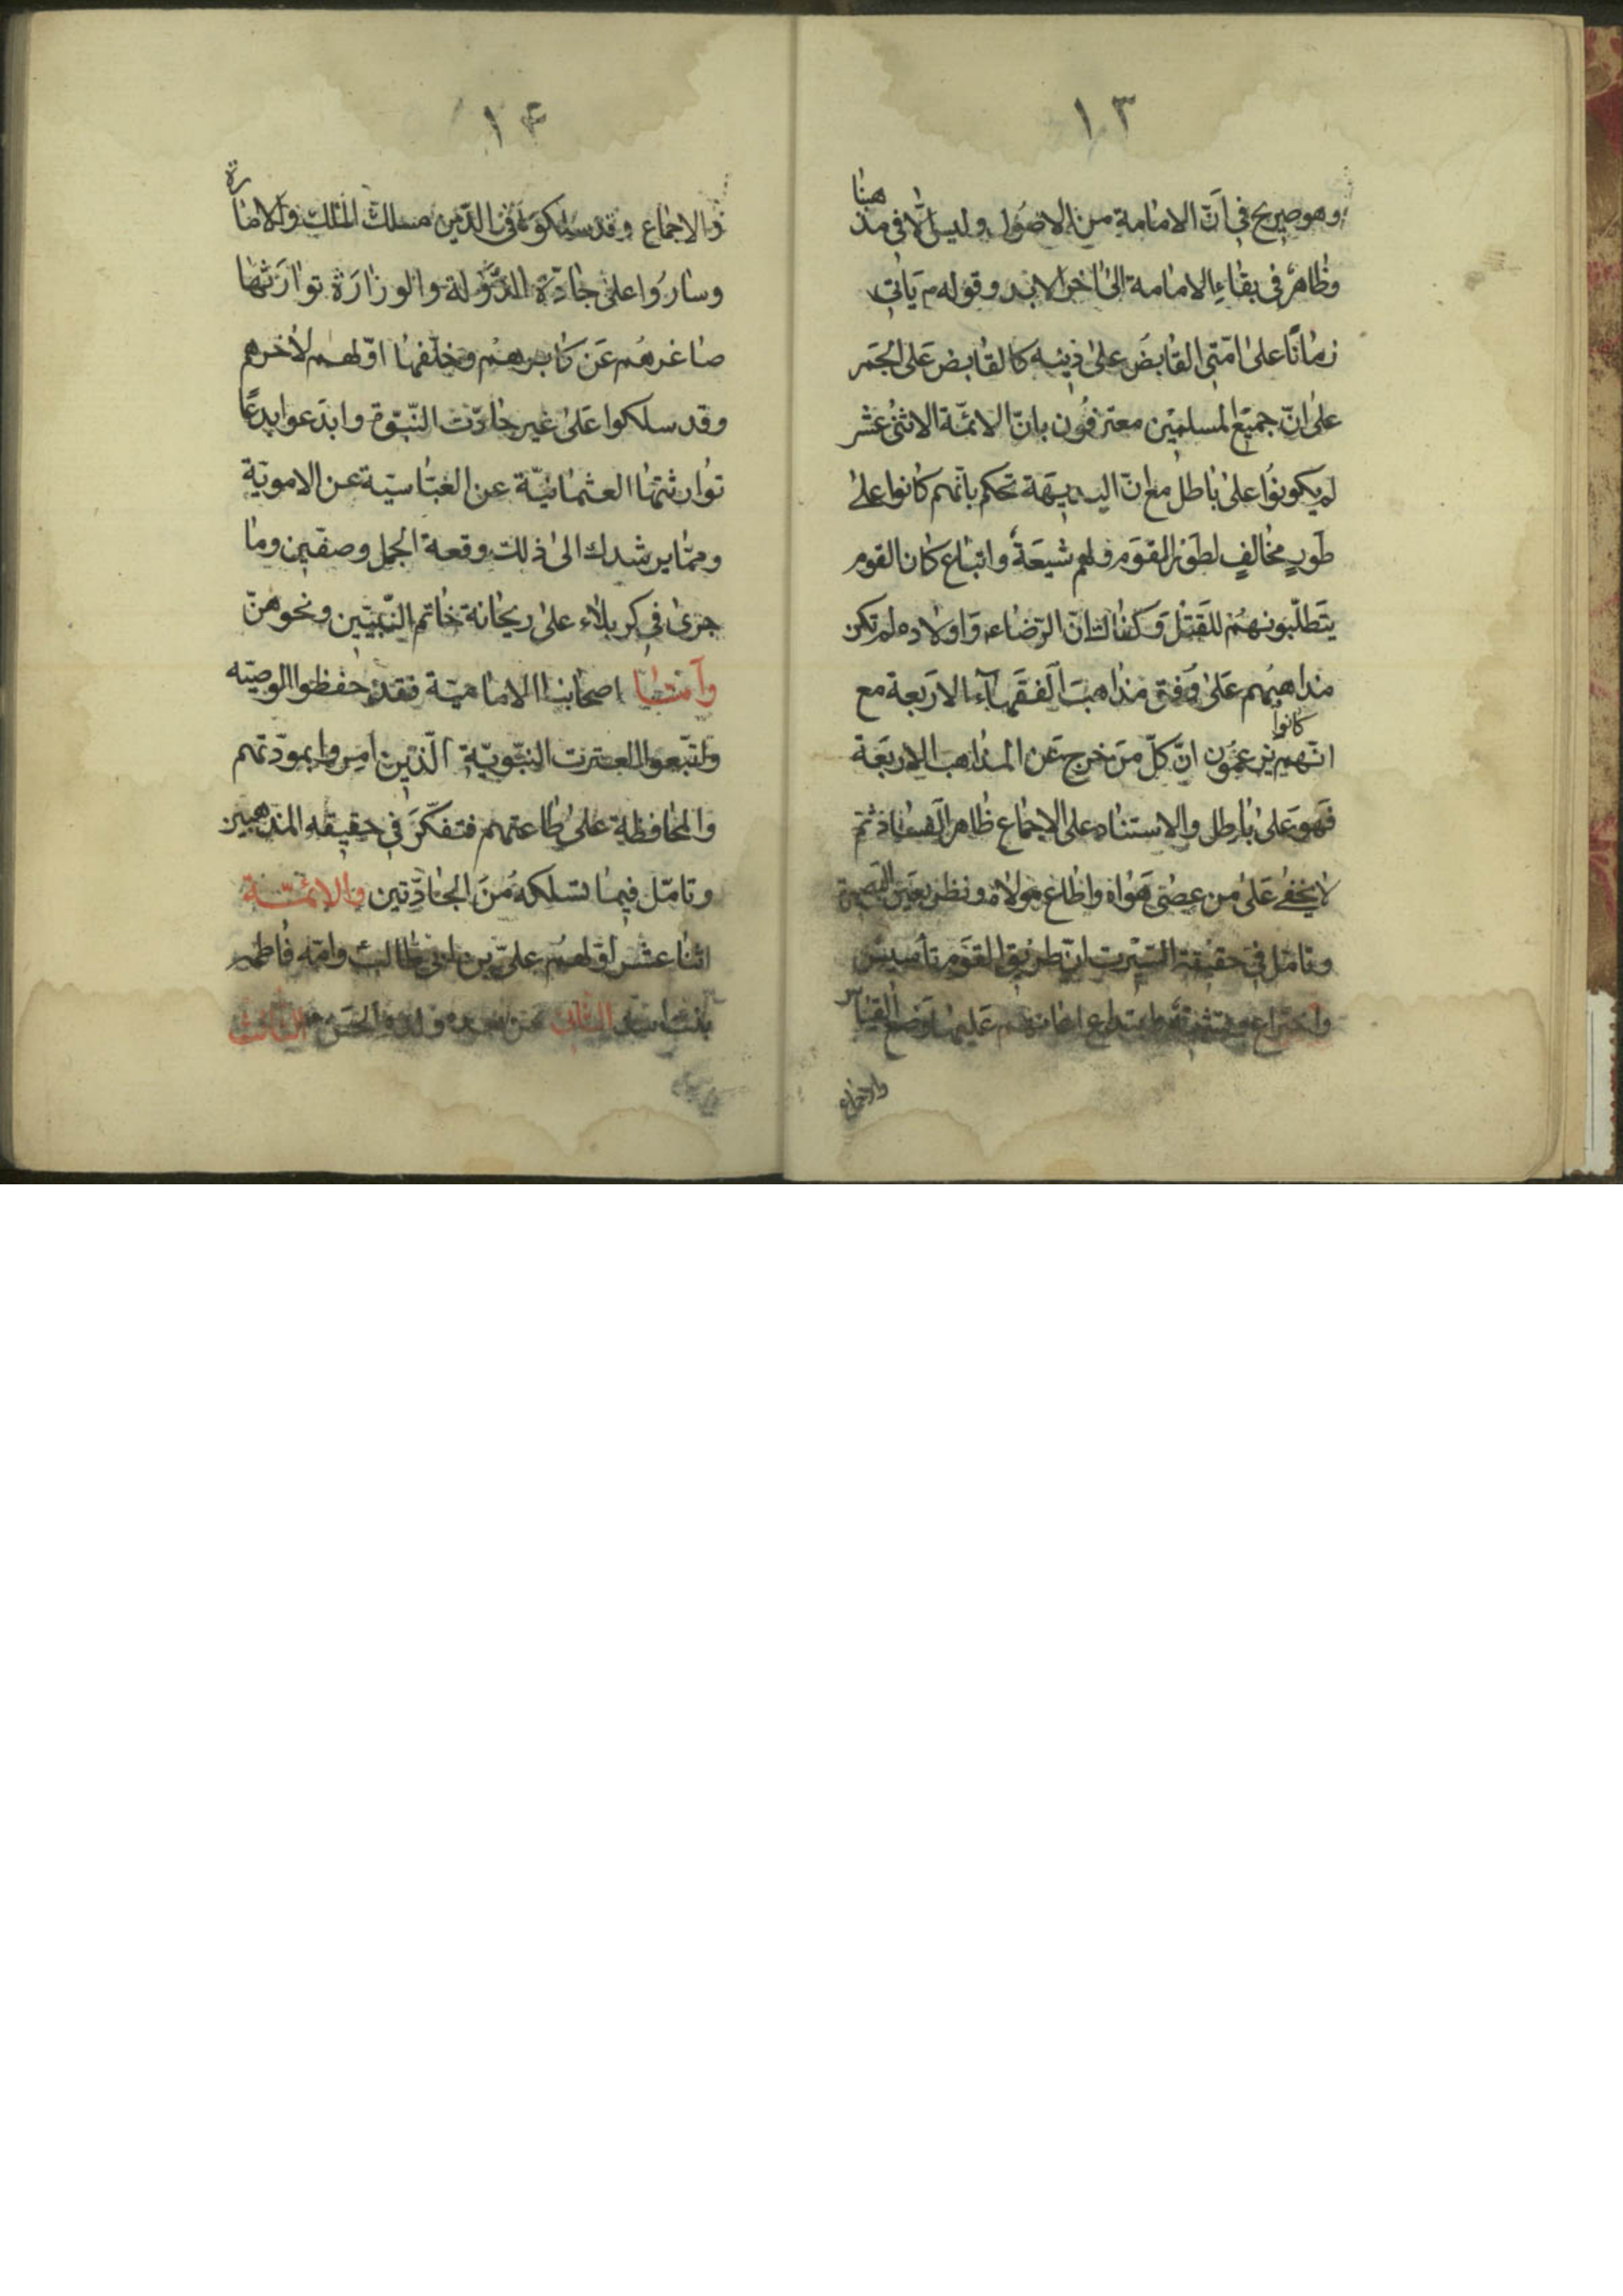 ١٣
وهو صريح في انّ الامامة من الاصول وليس الّا في مذهبنا
وظاهر في بقاء الامامة الى اخر الابد وقوله م ياتي
زمانًا على امّتي القابض على دينه كالقابض على الجمر
على انّ جميع المسلمين معترفون بانّ الائمّة الاثنى عشر
لم يكونوا على باطل مع انّ البديهة تحكم بانّهم كانوا على
طورٍ مخالفٍ لطور القوم ولهم شيعة واتباع كان القوم
يتطلّبونهم للقتل وكفاك انّ الرّضاء واولاده لم تكن
مذاهبهم على وفق مذاهب الفقهاء الاربعة مع
انّهم كانوا يزعمون انّ كلّ من خرج عن المذاهب الاربعة
فهو على باطل والاستناد على الاجماع ظاهر الفساد ثمّ
لا يخفى على من عصى هواه واطاع مولاه ونظر بعين البصيرة
وتامّل في حقيقة السّيرت انّ طريق القوم تأسيس
واختراع
والاجماع
١۴
والاجماع وقد سلكوا في الدّين مسلك الملك والامارة
وساروا على جادّة الدّولة والوزارة توارثها
صاغرهم عن كابرهم وخلّفها اوّلهم لاخرهم
وقد سلكوا على غير جادّت النّبوّة وابتدعوا بدعًا
توارثتها العثمانيّة عن العبّاسيّة عن الامويّة
وممّا يرشدك الى ذلك وقعة الجمل وصفّين وما
جرى في كربلاء على ريحانة خاتم النّبيّين ونحوهنّ
وامّا اصحابنا الاماميّة فقد حفظوا الوصيّه
واتّبعوا العترت النبّويّة الّذين امروا بمودّتهم
والمحافظة على طاعتهم فتفكّر في حقيقه المذهبين
وتامّل فيما تسلكه من الجادّتين والائمّة
اثنا عشر اوّلهم عليّ بن ابي طالب وامّه فاطمه
بنت اسد الثّاني من بعده ولده الحسن الثّالث